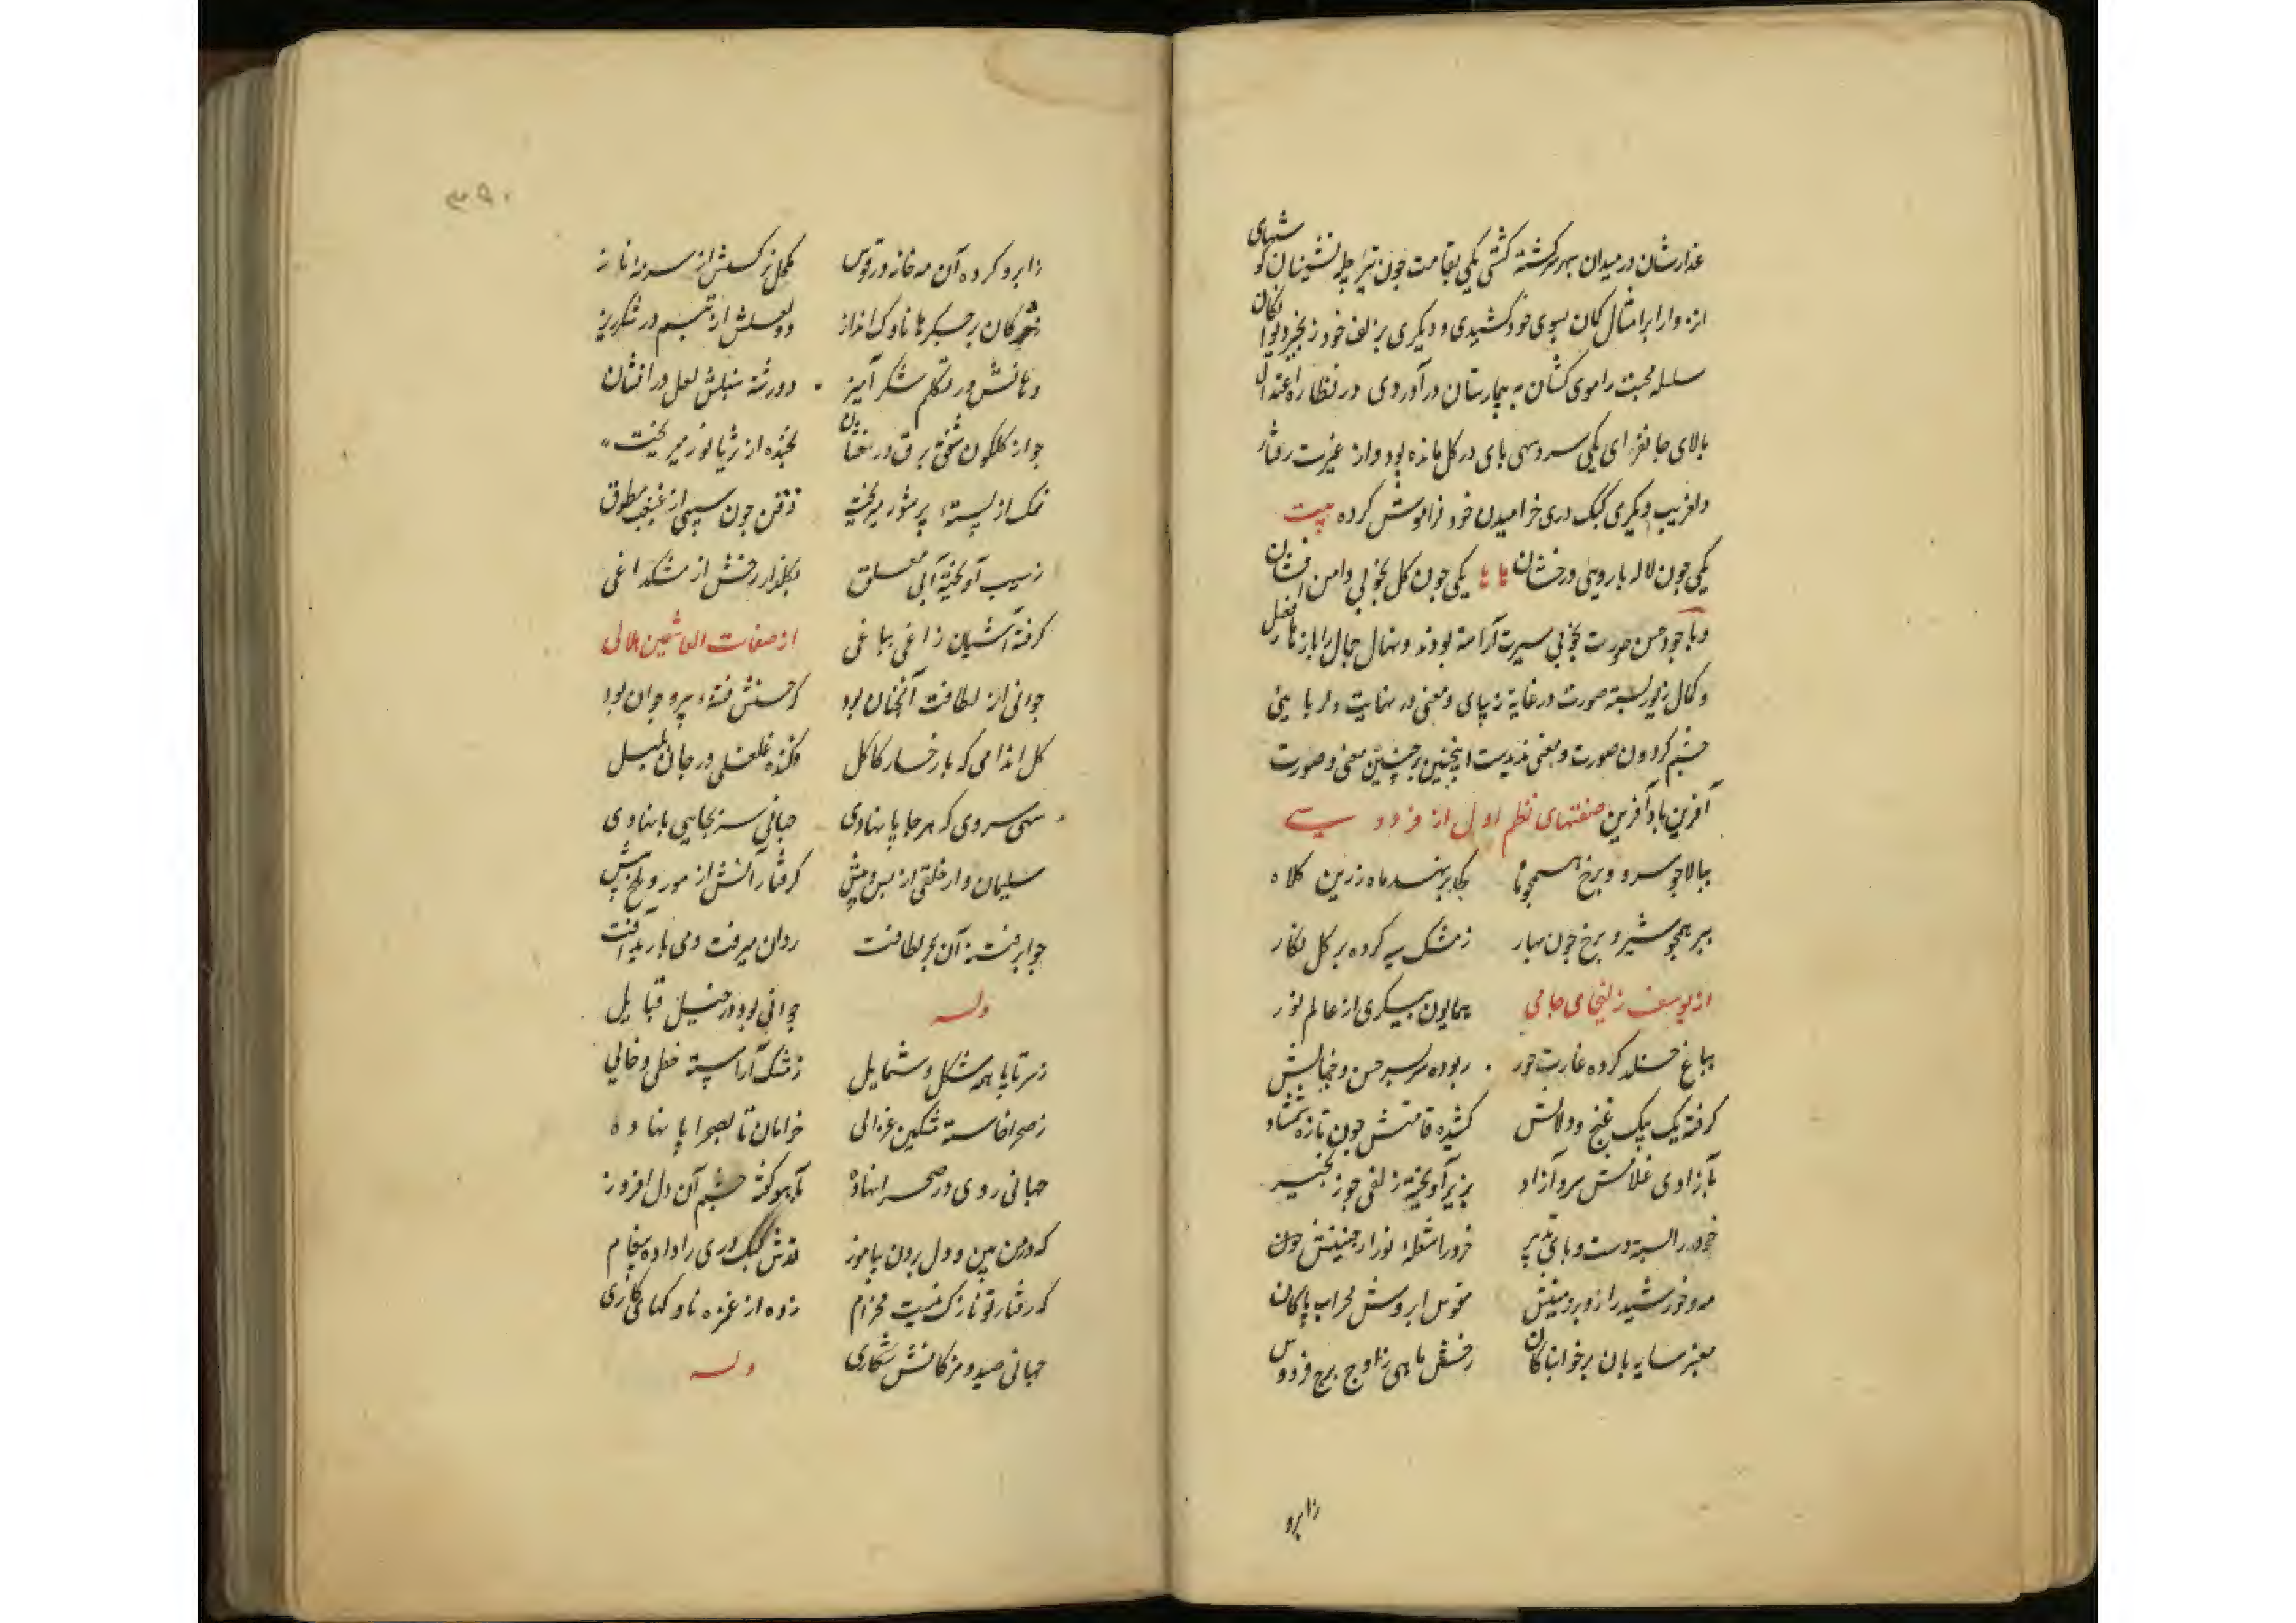 عذارشان در میدان بهر سرکشته کشتی یکی بقامت چون تیر چله نشینان کو شهای
انزوا را بر امثال کمان بسوی خود کشیدی و دیکری بزلف خود زنجیر دیوا نکان
سلسله محبت را موی کشان به بیمارستان در آوردی در نظاره اعتدال
بالای جانفزای یکی سرو سهی بای در کل مانده بود و از غیرت رفتار
دلفریب دیکری کبک دری خرامیدن خود فراموش کرده بیت
یکی چون لاله با رویی درخشان یکی چون کل بخوبی دامن افشان
و با وجود حسن صورت بخوبی سیرت آراسته بودند و نهال جمال را باز هار فضل
و کمال زیور بسته صورت در غایة زیبای و معنی در نهایت دلربایی
چشم کردون صورت و معنی ندیدست اینچنین بر چنین معنی و صورت
آفرین باد آفرین صفتهای نظم اول از فردوسی
ببالا چو سرو و برخ همچو ماه یکی بر نهد ماه زرین کلاه
ببر همچو شیر و برخ چون بهار ز مشک سیه کرده بر کل نکار
از یوسف زلیخای جامی همایون پیکری از عالم نور
بباغ خلد کرده غارت حور ربوده سر بسر حسن و جمالش
کرفته یک بیک غنج و دلالش کشیده قامتش چون تازه شمشاد
بآزادی غلامش سرو آزاد بزیر آویخته زلفی چو زنجیر
خرد را بسته دست و بای تدبیر فروزان شعله نور از جبینش
مه و خورشید را رو بر زمینش مقوس ابروش محراب پاکان
معنبر سایه بان بر خوابناکان رخش ماهی ز اوج برج فردوس
زابرو
۳۹۰
ز ابرو کرده آن مه خانه در قوس مکحل نرکسش از سرمه ناز
ز مژکان بر جکرها ناوک انداز دو لعلش از تبسم در شکرریز
دهانش در تکلم شکر آمیز دو رشته لعل درافشان
چو از کلکون شفق برق درخشان بخنده از ثریا نور میریخت
نمک از پسته پر شور میریخت ذقن چون سیبی از غبغب مطوق
ز سیب آویخته آبی معلق بکلزار رخش از مشک داغی
کرفته آشیان زاغی بباغی از صفات العاشقین هلالی
جوانی از لطافت آنچنان بود کز حسنش فتنه پیر و جوان بود
کل اندامی که با رخسار کاکل فکنده غلغلی در جان بلبل
سهی سروی که هر جا پا نهادی جهانی سر بجای پا نهادی
سلیمان وار خلقی از پس و پیش کرفتارانش از مور و ملخ بیش
چو ابر فتنه آن بحر لطافت روان میرفت و می بارید آفت
وله جوانی بود در خیل قبایل
ز سر تا پا همه شکل و شمایل ز مشک آراسته خطی و خالی
ز صحرا خاسته مشکین غزالی خرامان تا بصحرا پا نهاده
جهانی روی در صحرا نهاده بآهو کفته چشم آن دل افروز
که در من بین و دل بردن بیاموز قدش کبک دری را داده پیغام
که رفتار تو نازک نیست مخرام زده از غمزه ناوکهای کاری
جهانی صید و مژکانش شکاری وله